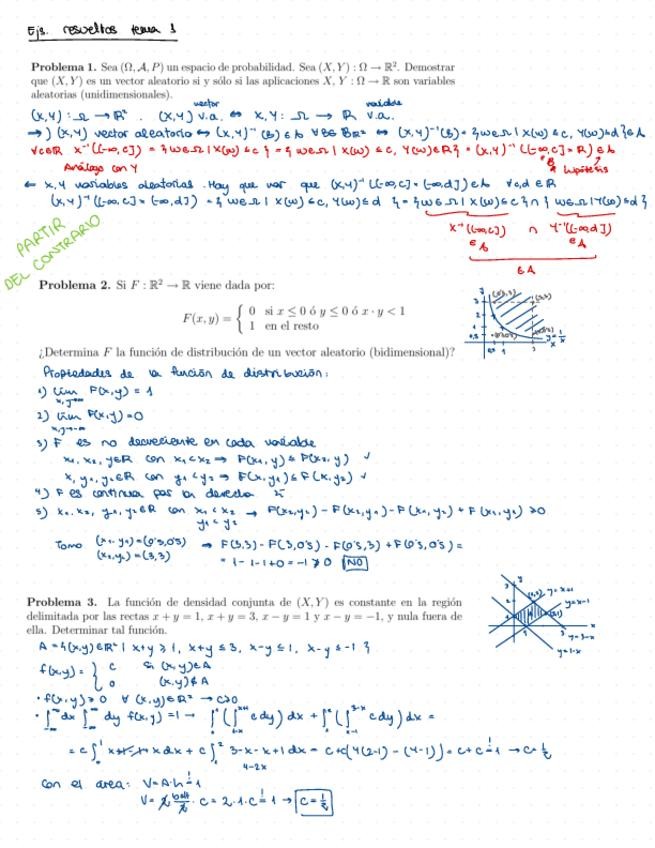 Ejs. resueltos tema 1
Problema 1. Sea (Ω, A, P) un espacio de probabilidad. Sea (X, Y) : Ω → ℝ². Demostrar
que (X, Y) es un vector aleatorio si y sólo si las aplicaciones X, Y : Ω → ℝ son variables
aleatorias (unidimensionales).
vector variable
(X,Y): Ω → ℝ². (X,Y) v.a. ⇔ X, Y: Ω → ℝ v.a.
→) (X,Y) vector aleatorio ↔ (X,Y)⁻¹(B) ∈ A ∀B∈ B_ℝ² ↔ (X,Y)⁻¹(B) = {w∈Ω | X(w) ≤ c, Y(w) ≤ d} ∈ A
∀c∈ℝ X⁻¹((-∞,c]) = {w∈Ω | X(w) ≤ c} = {w∈Ω | X(w) ≤ c, Y(w)∈ℝ} = (X,Y)⁻¹((-∞,c] × ℝ) ∈ A
Análogo con Y hipótesis
← X, Y variables aleatorias. Hay que ver que (X,Y)⁻¹((-∞,c] × (-∞,d]) ∈ A ∀c,d ∈ ℝ
(X,Y)⁻¹((-∞,c] × (-∞,d]) = {w∈Ω | X(w) ≤ c, Y(w) ≤ d} = {w∈Ω | X(w) ≤ c} ∩ {w∈Ω | Y(w) ≤ d}
X⁻¹((-∞,c]) ∩ Y⁻¹((-∞,d])
∈ A ∈ A
∈ A
PARTIR
DEL CONTRARIO
Problema 2. Si F : ℝ² → ℝ viene dada por:
F(x, y) = { 0 si x ≤ 0 ó y ≤ 0 ó x · y < 1
1 en el resto
¿Determina F la función de distribución de un vector aleatorio (bidimensional)?
Propiedades de la función de distribución:
1) lim F(x,y) = 1
x,y→∞
2) lim F(x,y) = 0
x,y→-∞
3) F es no decreciente en cada variable
x₁, x₂, y∈ℝ con x₁ < x₂ → F(x₁, y) ≤ F(x₂, y) ✓
x, y₁, y₂∈ℝ con y₁ < y₂ → F(x, y₁) ≤ F(x, y₂) ✓
4) F es continua por la derecha
5) x₁, x₂, y₁, y₂∈ℝ con x₁ < x₂ → F(x₂,y₂) - F(x₂,y₁) - F(x₁,y₂) + F(x₁,y₁) ≥ 0
y₁ < y₂
Tomo (x₁, y₁) = (0'5, 0'5) → F(3,3) - F(3,0'5) - F(0'5,3) + F(0'5,0'5) =
(x₂, y₂) = (3,3)
= 1 - 1 - 1 + 0 = -1 ≱ 0 NO
Problema 3. La función de densidad conjunta de (X, Y) es constante en la región
delimitada por las rectas x + y = 1, x + y = 3, x − y = 1 y x − y = −1, y nula fuera de
ella. Determinar tal función.
y=x+1
y=x-1
y=3-x
y=1-x
A = {(x,y)∈ℝ² | x+y ≥ 1, x+y ≤ 3, x-y ≤ 1, x-y ≥ -1}
f(x,y) = { c si (x,y)∈A
0 (x,y)∉A
· f(x,y) ≥ 0 ∀ (x,y)∈ℝ² → c ≥ 0
· ∫ dx ∫ dy f(x,y) = 1 → ∫ (∫ c dy) dx + ∫ (∫ c dy) dx =
4-2x
con el área: V = A·h = 1
· c = 2·1·c = 1 → c = 1/2